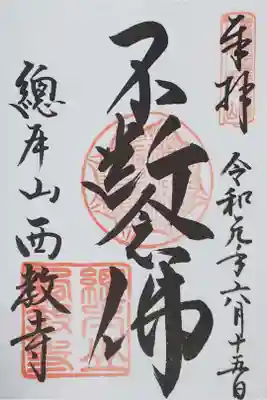 奉拝
令和元年六月十五日
不斷念佛
總本山西教寺